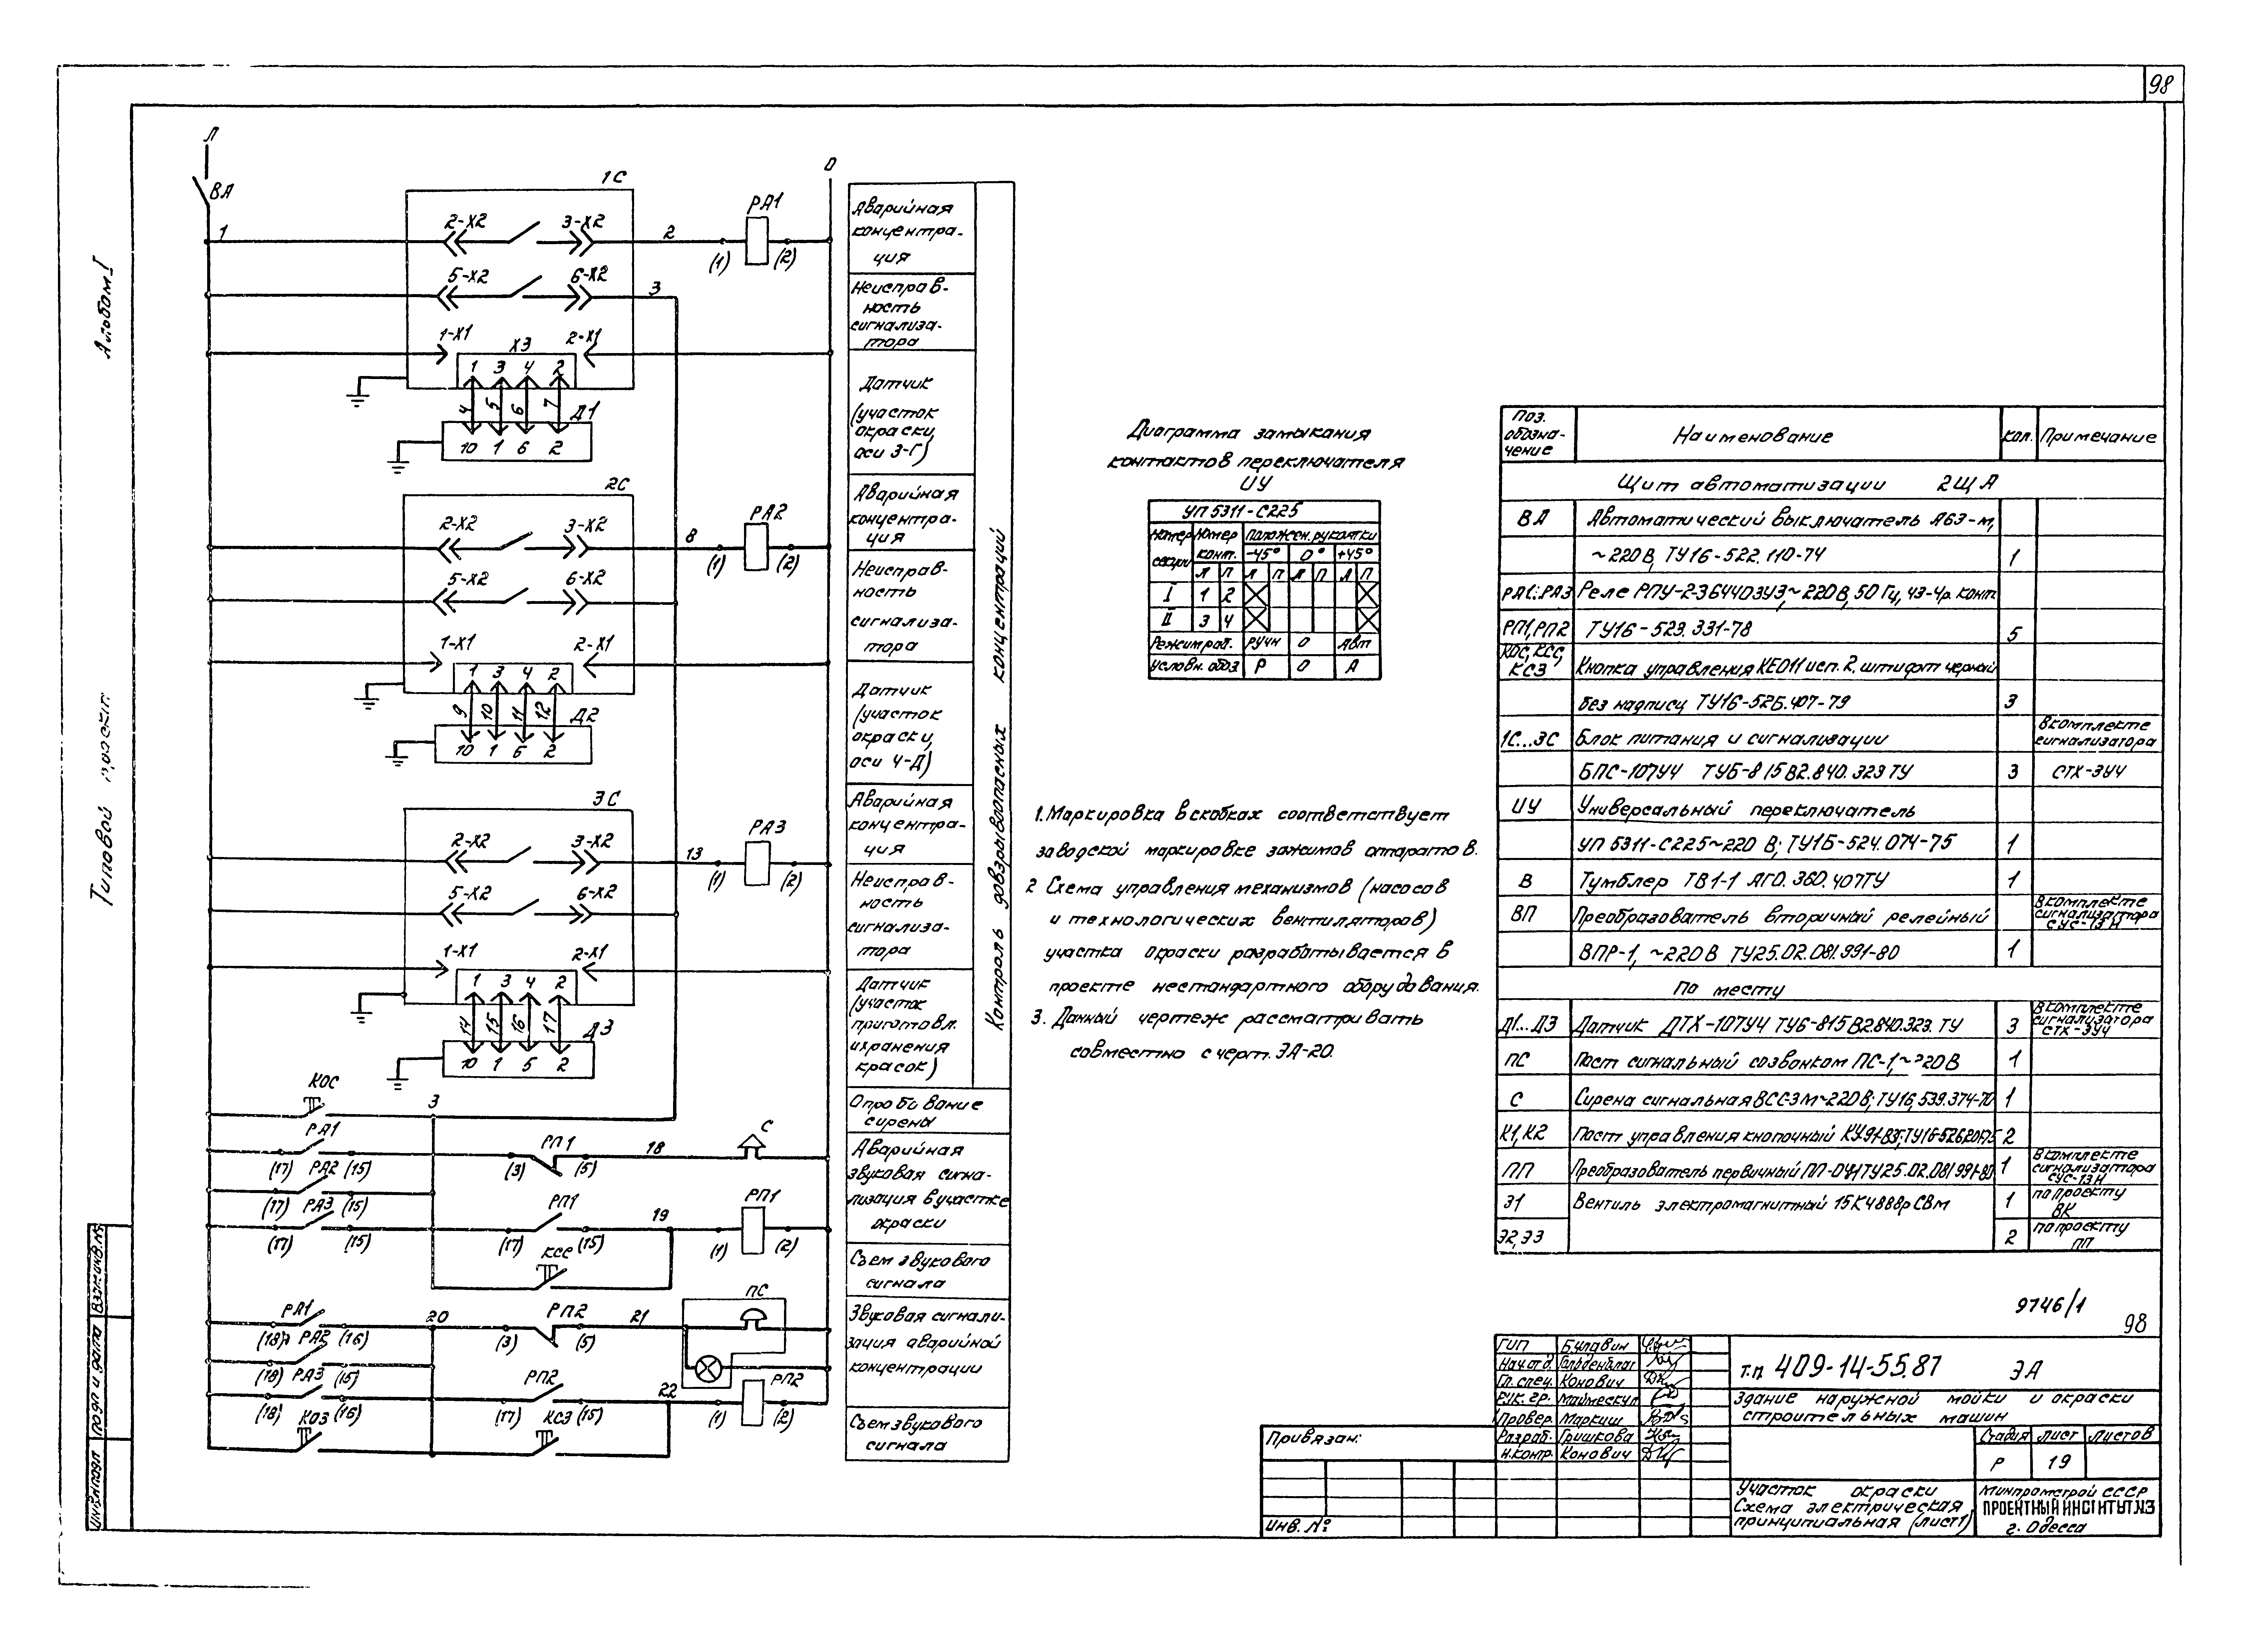 98
Альбом I
Типовой проект
Л
О
ВА
1
1С
2-Х2
3-Х2
2
РА1
(1)
(2)
5-Х2
6-Х2
3
1-Х1
Х3
2-Х1
1 3 4 2
4 5 6 7
Д1
10 1 6 2
2С
2-Х2
3-Х2
8
РА2
(1)
(2)
5-Х2
6-Х2
1-Х1
2-Х1
1 3 4 2
9 10 11 12
Д2
10 1 6 2
3С
2-Х2
3-Х2
13
РА3
(1)
(2)
5-Х2
6-Х2
1-Х1
2-Х1
1 3 4 2
14 15 16 17
Д3
10 1 5 2
КОС
3
РА1
(17) РА2 (15)
РП1
(3) (5)
18
С
(17) РА3 (15)
(17) (15)
РП1
(17) КСС (15)
19
РП1
(1) (2)
ПС
РА1
(18) РА2 (16)
20
РП2
(3) (5)
21
(18) РА3 (16)
(18) КОЗ (16)
РП2
(17) КСЗ (15)
22
РП2
(1) (2)
Аварийная
концентра-
ция
Неисправ-
ность
сигнализа-
тора
Датчик
(участок
окраски,
оси 3-Г)
Аварийная
концентра-
ция
Неисправ-
ность
сигнализа-
тора
Датчик
(участок
окраски,
оси 4-Д)
Аварийная
концентра-
ция
Неисправ-
ность
сигнализа-
тора
Датчик
(участок
приготовл.
и хранения
красок)
Контроль довзрывоопасных концентраций
Опробование
сирены
Аварийная
звуковая сигна-
лизация в участке
окраски
Съем звукового
сигнала
Звуковая сигнали-
зация аварийной
концентрации
Съем звукового
сигнала
Диаграмма замыкания
контактов переключателя
ИУ
УП 5311-С225
Номер секции
Номер конт.
Положен. рукоятки
-45° 0° +45°
Л П Л П Л П Л П
I 1 2
II 3 4
Режим раб. Ручн 0 Авт
Условн. обоз Р 0 А
1. Маркировка в скобках соответствует
заводской маркировке зажимов аппаратов.
2 Схема управления механизмов (насосов
и технологических вентиляторов)
участка окраски разрабатывается в
проекте нестандартного оборудования.
3. Данный чертеж рассматривать
совместно с черт. ЭА-20.
Поз. обозна-чение Наименование Кол. Примечание
Щит автоматизации 2ЩА
ВА Автоматический выключатель А63-М,
~220В, ТУ16-522.110-74 1
РА1...РА3 Реле РПУ-2-36440ЗУ3,~220В, 50 Гц, 4з-4р конт.
РП1,РП2 ТУ16-523.331-78 5
КОС, КСС,
КСЗ Кнопка управления КЕ011 исп. 2, штифт черный
без надписи ТУ16-526.407-79 3
1С...3С Блок питания и сигнализации В комплекте сигнализатора
БПС-107У4 ТУ6-8 15В2.840.323 ТУ 3 СТХ-3У4
ИУ Универсальный переключатель
УП 5311-С225~220 В; ТУ16-524.074-75 1
В Тумблер ТВ1-1 АГО.360.407ТУ 1
ВП Преобразователь вторичный релейный В комплекте сигнализатора СУС-13Н
ВПР-1, ~220В ТУ25.02.081.991-80 1
По месту
Д1...Д3 Датчик ДТХ-107У4 ТУ6-815В2.840.323. ТУ 3 В комплекте сигнализатора СТХ-3У4
ПС Пост сигнальный со звонком ПС-1,~220В 1
С Сирена сигнальная ВСС-3М~220В; ТУ16,539.374-70 1
К1, К2 Пост управления кнопочный 2
ПП Преобразователь первичный 1 В комплекте сигнализатора СУС-13Н
Э1 Вентиль электромагнитный 15К4888рСВМ 1 по проекту ВК
Э2,Э3 2 по проекту ПП
9746/1
98
ГИП Булавин
Нач отд. Гольденблат
Гл. спец. Конович
Рук. гр. Маймескул
Провер. Маркиш
Разраб. Гришкова
Н.контр. Конович
т.п. 409-14-55.87 ЭА
Здание наружной мойки и окраски
строительных машин
Стадия Лист Листов
Р 19
Участок окраски
Схема электрическая
принципиальная (лист 1)
Минпромстрой СССР
ПРОЕКТНЫЙ ИНСТИТУТ №3
г. Одесса
Привязан:
Инв. №
Инв.№подл Подп и дата Взам.инв.№